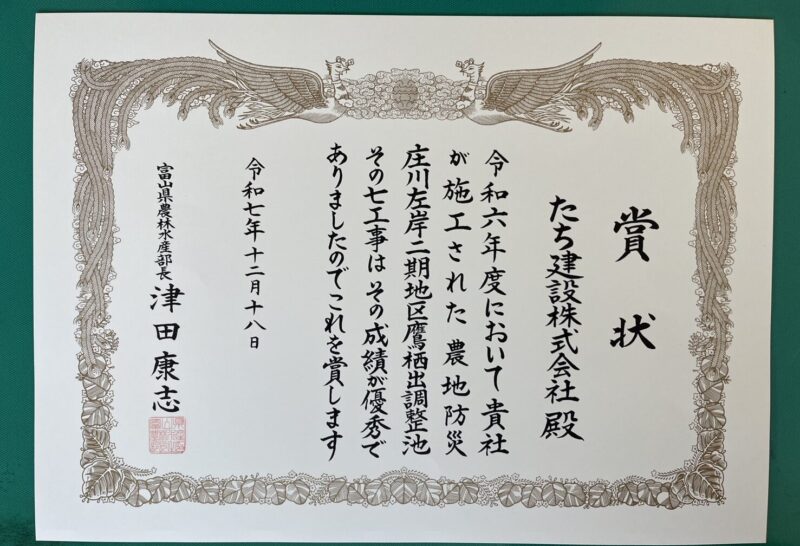 賞状
たち建設株式会社 殿
令和六年度において貴社
が施工された農地防災
庄川左岸二期地区鷹栖出調整池
その七工事はその成績が優秀で
ありましたのでこれを賞します
令和七年十二月十八日
富山県農林水産部長 津田康志